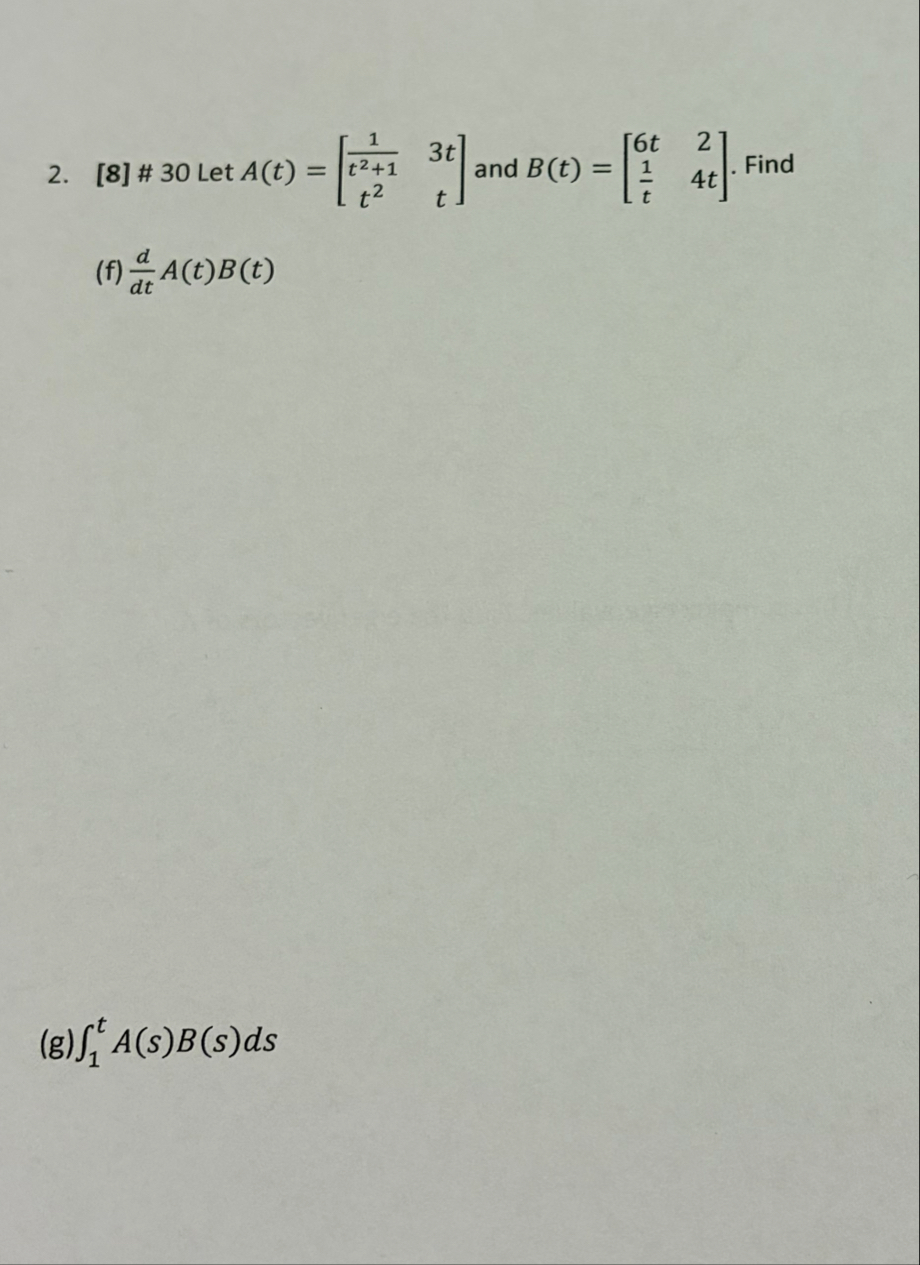 2. [8] # 30 Let A(t) = [1/(t²+1) 3t; t² t] and B(t) = [6t 2; 1/t 4t]. Find
(f) d/dt A(t)B(t)
(g) ∫₁ᵗ A(s)B(s)ds